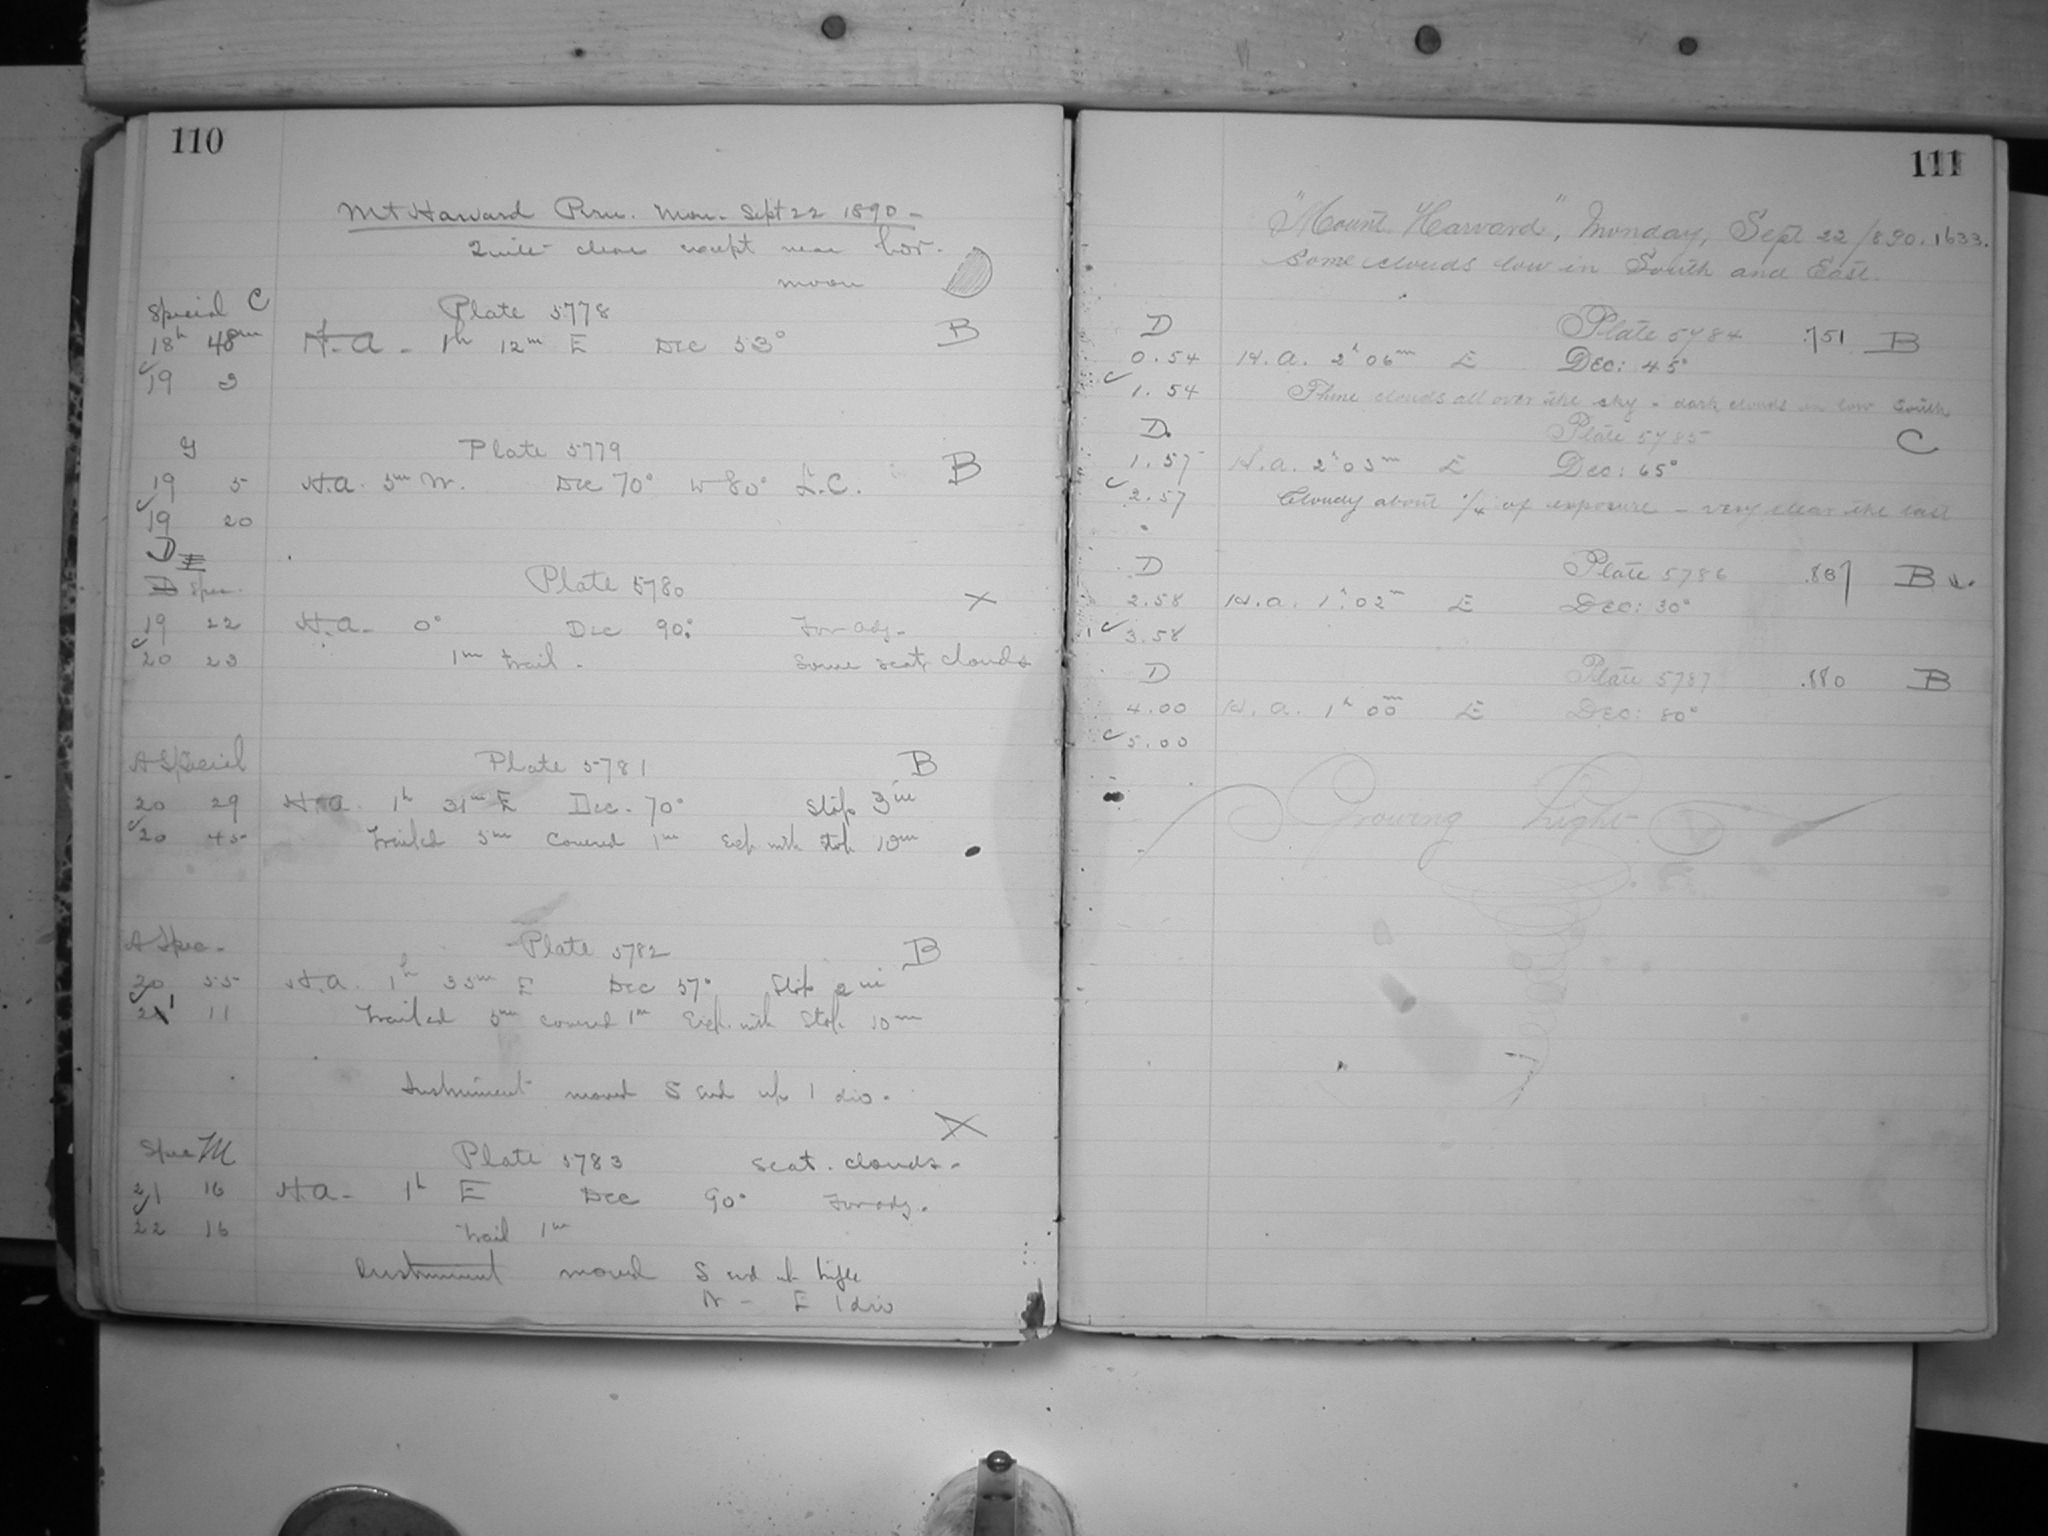 110
Mt Harvard Peru. Mon. Sept 22 1890 -
Quite clear except near hor.
moon
Special C Plate 5778
18h 48m H.A. - 1h 12m E Dec 53° B
19 3
G Plate 5779
19 5 H.A. 5m W. Dec 70° w 80° L.C. B
19 20
D E
D Spec. Plate 5780 X
19 22 H.A. - 0° Dec 90° For adj.
20 23 1m trail. Some scat clouds
A Special Plate 5781 B
20 29 H.A. 1h 31m E Dec. 70° Stop 3in
20 45 Trailed 5m Covered 1m Exp. with stop 10m
A Spec. Plate 5782 B
20 55 H.A. 1h 35m E Dec 57° Stop 2in
21 11 Trailed 5m covered 1m Exp. with Stop 10m
Instrument moved S end up 1 div.
X
Spec M Plate 5783 Scat. clouds.
21 16 H.A. - 1h E Dec 90° For adj.
22 16 Trail 1m
Instrument moved S end up trifle
N - E 1 div
111
"Mount "Harvard", Monday, Sept 22/890. 1633.
Some clouds low in South and East.
D Plate 5784 .751 B
0.54 H.A. 2h 06m E Dec: 45°
1.54 Thine clouds all over the sky - dark clouds in low South
D. Plate 5785 C
1.57 H.A. 2h 03m E Dec: 65°
2.57 Cloudy about 1/4 of exposure - very clear the last
D Plate 5786 B
2.58 H.A. 1h 02m E Dec: 30°
3.58
D Plate 5787 .880 B
4.00 H.A. 1h 00m E Dec: 80°
5.00
Growing Light